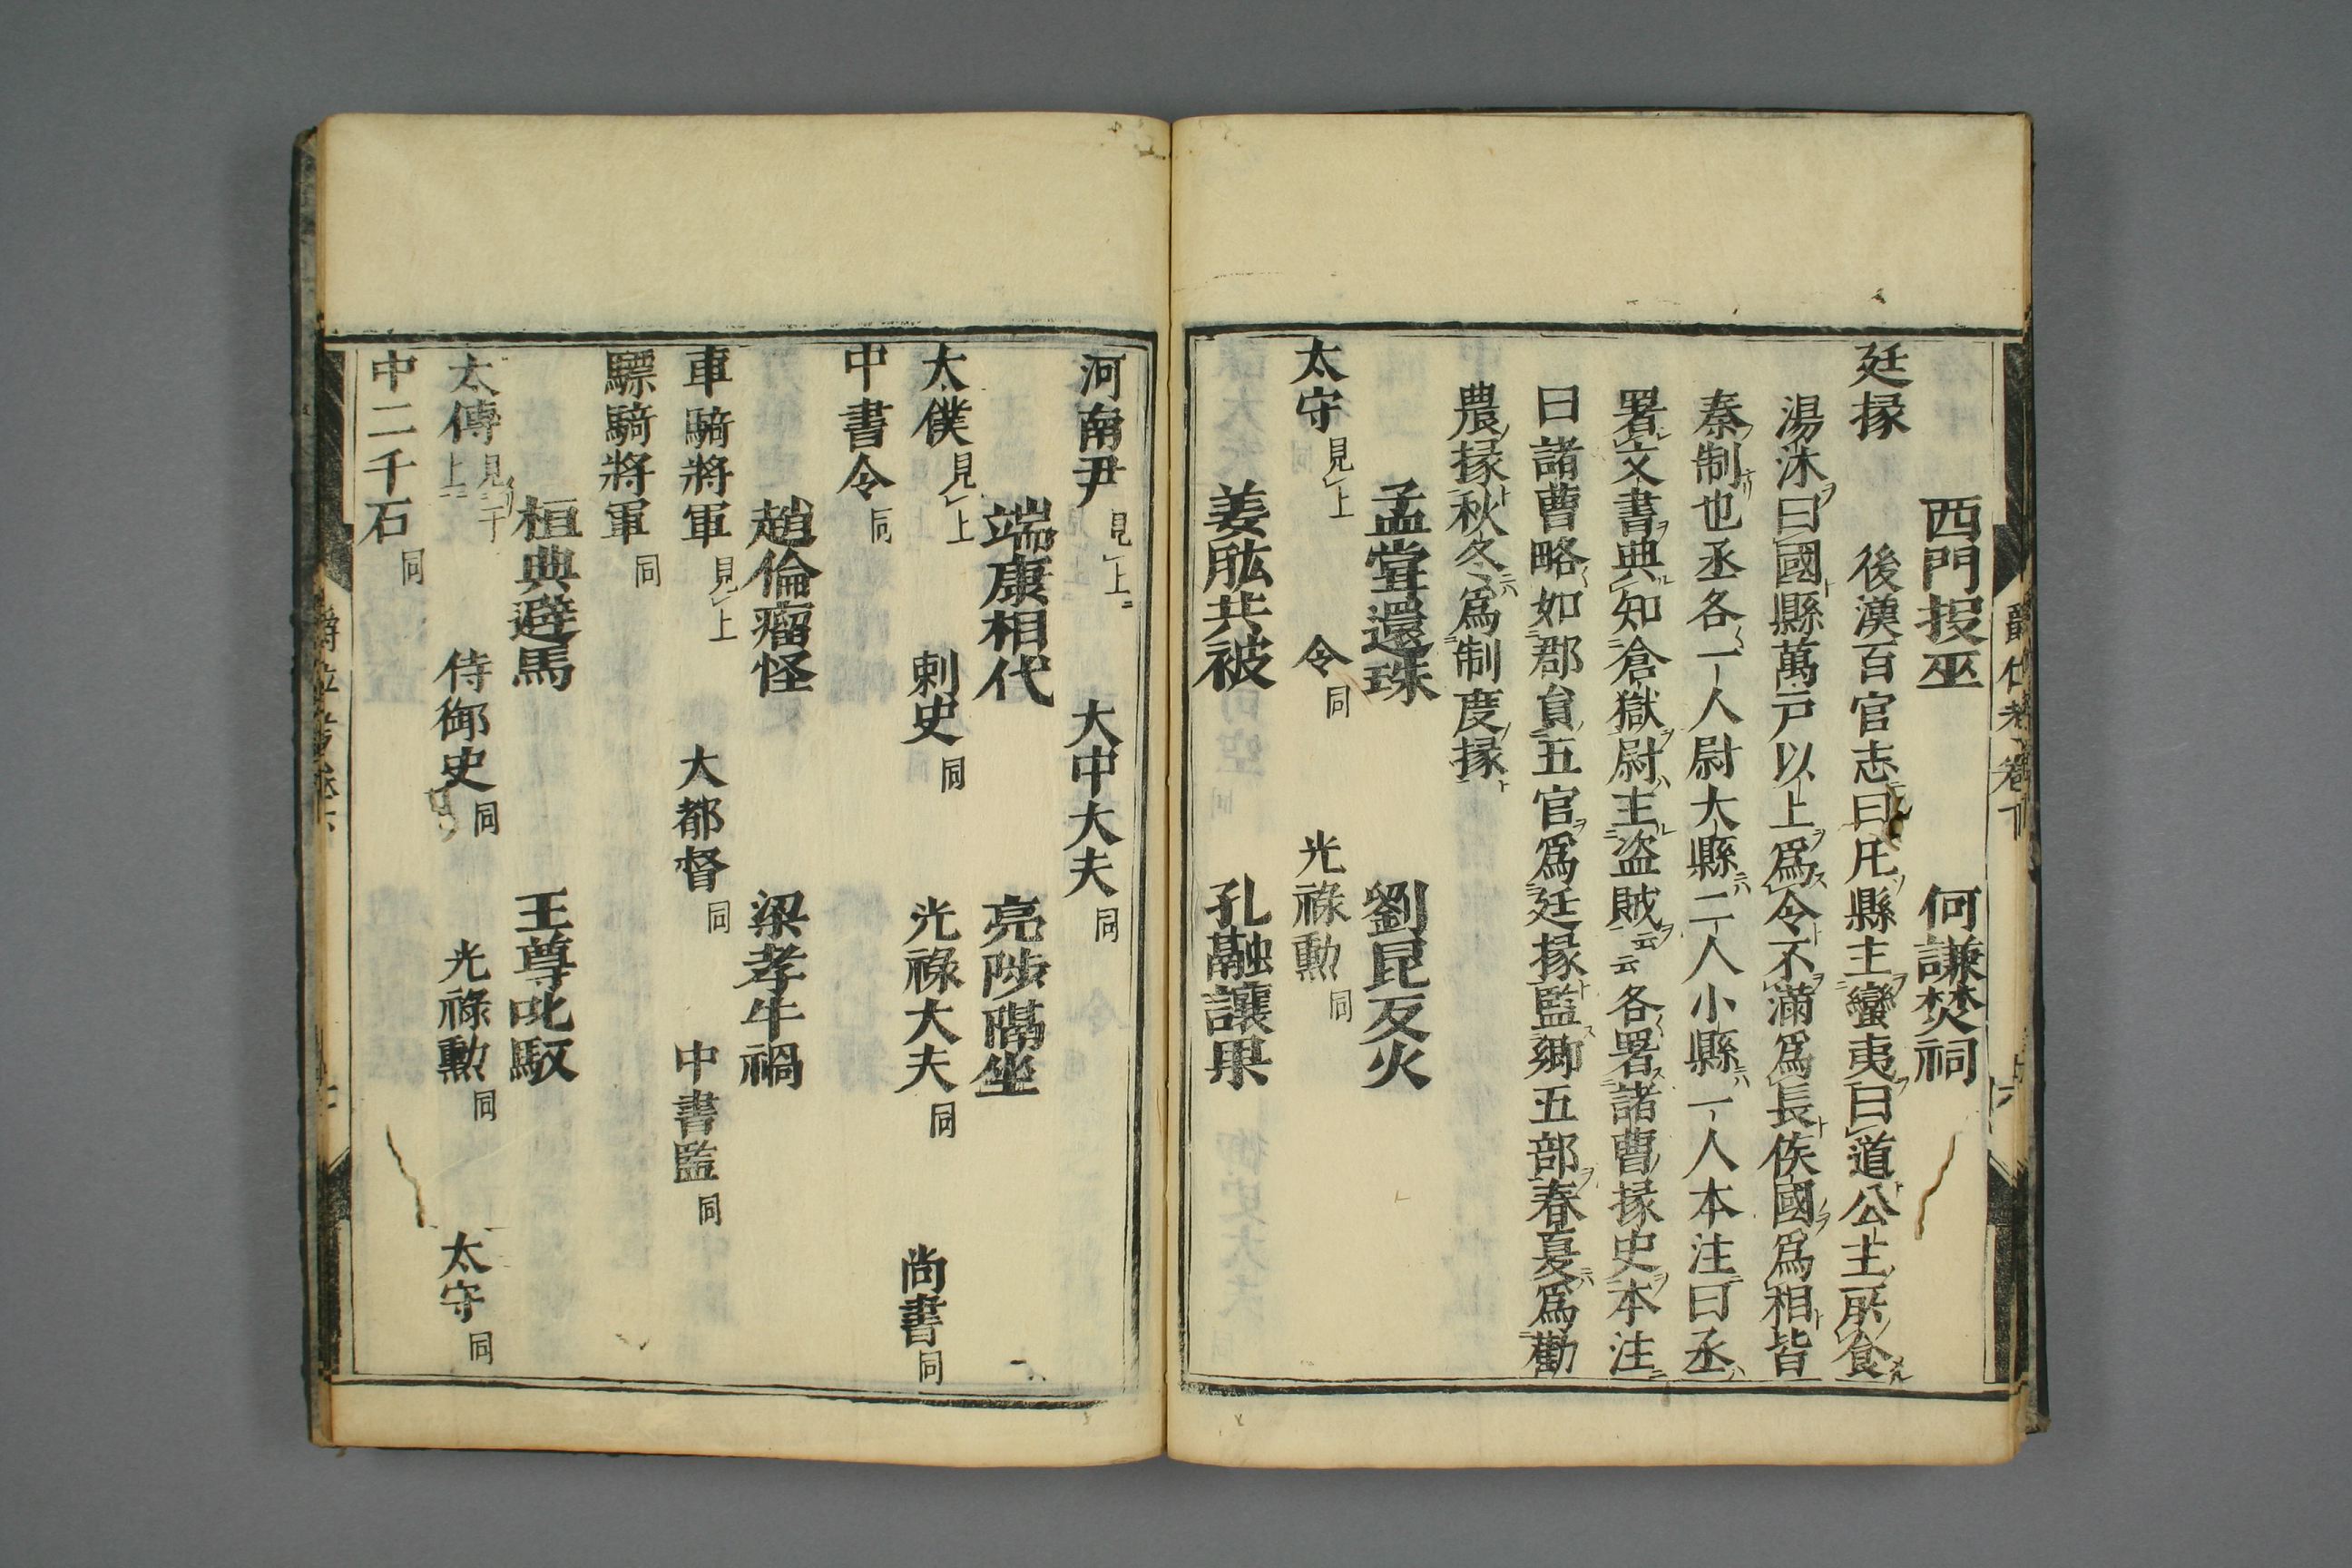 西門投巫　何謙焚祠
廷掾　後漢百官志曰凡縣主蠻夷曰道公主所食
湯沐曰國縣萬戸以上爲令不滿爲長侯國爲相皆
秦制也丞各一人尉大縣二人小縣一人本注曰丞
署文書典知倉獄尉主盗賊云云各署諸曹掾史本注
曰諸曹略如郡貟五官爲廷掾監郷五部春夏爲勸
農掾秋冬爲制度掾
孟甞還珠　劉昆反火
太守見上　令同　光祿勲同
姜肱共被　孔融讓果
河南尹見上　大中大夫同
端康相代　亮陟隔坐
太僕見上　刺史同　光祿大夫同　尚書同
中書令同
趙倫瘤怪　梁孝牛禍
車騎將軍見上　大都督同　中書監同
驃騎將軍同
桓典避馬　王尊叱馭
太傅見上　侍御史同　光祿勲同　太守同
中二千石同